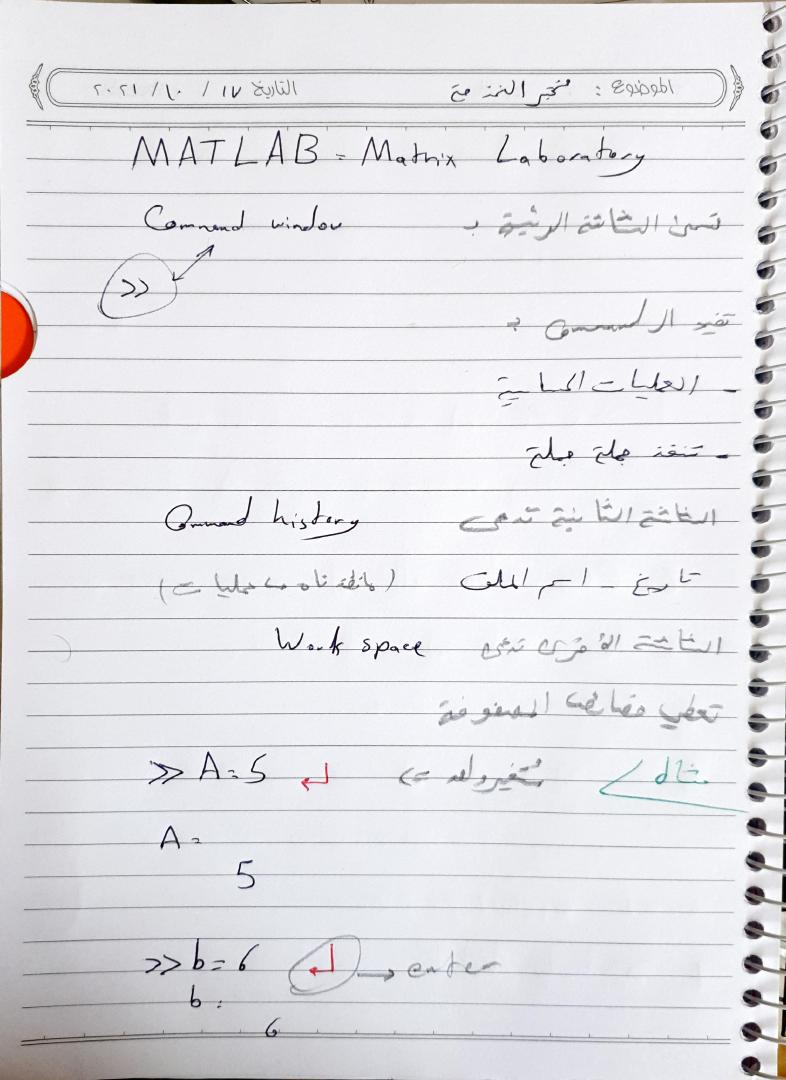 الموضوع : مختبر النمذجة التاريخ ١٧ / ١٠ / ٢٠٢١
MATLAB = Matrix Laboratory
تسمى الشاشة الرئيسية بـ Command window
>>
تفيد الـ Command بـ
- العمليات الحسابية
- تنفذ جملة جملة
الشاشة الثانية تدعى Command history
تاريخ - اسم الملف
الشاشة الأخرى تدعى Work space
تعطي خصائص المصفوفة
مثال متغير واحد >> A = 5 ↲
A =
5
>> b = 6 ↲ → enter
b =
6